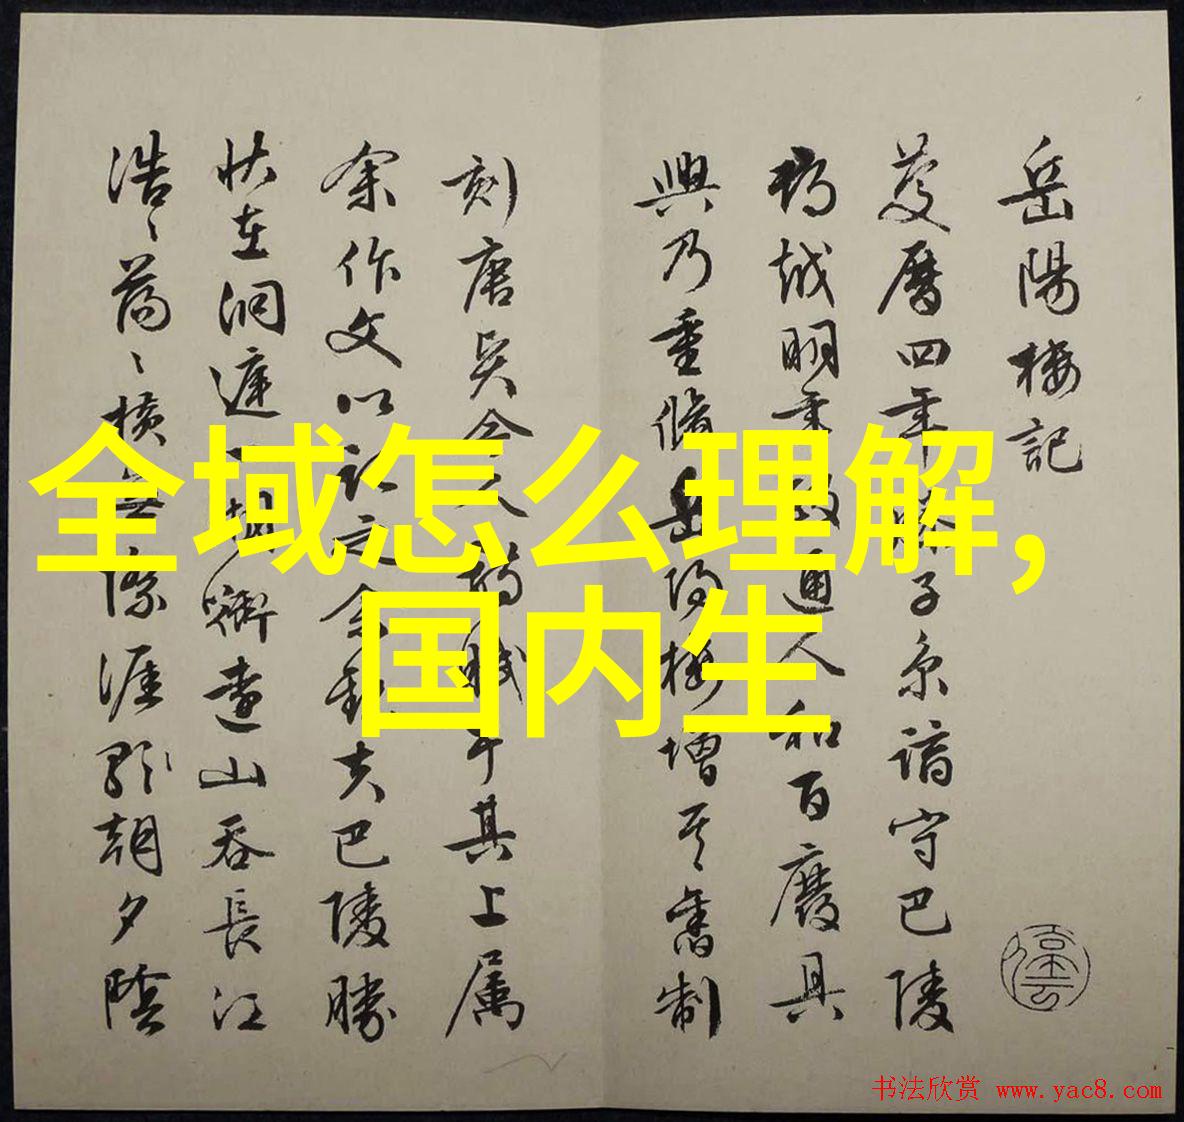 岳陽樓記
慶曆四年 子京謫守巴陵
郡越明年政通人和百廢具
興乃重脩岳陽樓增其舊制
刻唐賢今人詩賦于其上屬
余作文以記之余觀夫巴陵勝
狀在洞庭一湖銜遠山吞長江
浩〻蕩〻橫無際涯朝夕陰
全域怎么理解,
国内生
书法欣赏 www.yac8.com